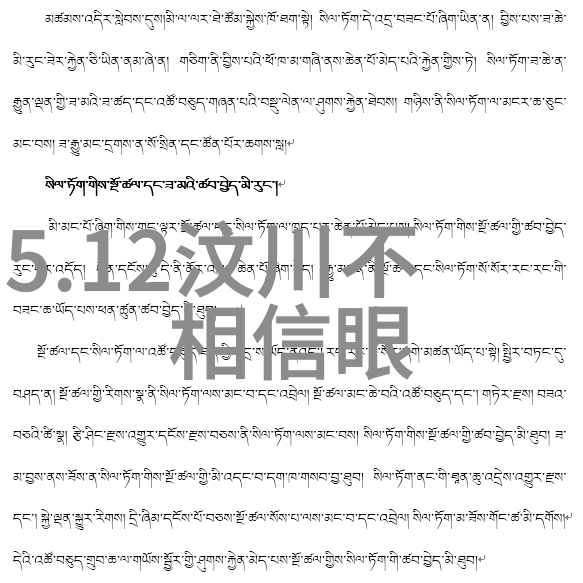 མཚམས་འདིར་སླེབས་དུས།མི་ལ་ལར་ཐེ་ཚོམ་སྐྱེས་ཁོ་ཐག་སྟེ། སིལ་ཏོག་དེ་འདྲ་བཟང་པོ་ཞིག་ཡིན་ན། བྱིས་པས་ཟ་ཆེ་
མི་རུང་ཟེར་རྐྱེན་ཅི་ཡིན་ནམ་ཞེ་ན། གཅིག་ནི་བྱིས་པའི་ཕོ་ཁ་མ་གཞི་ནས་ཆེན་པོ་མེད་པའི་རྐྱེན་གྱིས་ཏེ། སིལ་ཏོག་ཟ་ཆེ་ན་
རྒྱུན་ལྡན་གྱི་ཟ་མའི་ཟ་ཚད་དང་འཚོ་བཅུད་གཞན་པའི་བསྡུ་ལེན་ལ་ཤུགས་རྐྱེན་ཐེབས། གཉིས་ནི་སིལ་ཏོག་ལ་མངར་ཆ་ཅུང་
མང་བས། ཟ་རྒྱུ་མང་དྲགས་ན་སོ་སྲིན་དང་ཚོན་པོར་ཆགས་སླ།
སིལ་ཏོག་གིས་སྔོ་ཚལ་དང་ཟ་མའི་ཚབ་བྱེད་མི་རུང་།
མི་མང་པོ་ཞིག་གིས་གང་ལྟར་སྔོ་ཚལ་དང་སིལ་ཏོག་ལ་ཁྱད་པར་ཆེན་པོ་མེད་པས། སིལ་ཏོག་གིས་སྔོ་ཚལ་གྱི་ཚབ་བྱེད་
5.12汶川不
相信眼
བཟང་ཆ་ཡོད་པས་ཕན་ཚུན་ཚབ་བྱེད་མི་ཐུབ།
བཤད་ན། སྔོ་ཚལ་གྱི་རིགས་སྣ་ནི་སིལ་ཏོག་ལས་མང་བ་དང་འབྲེལ། སྔོ་ཚལ་མང་ཆེ་བའི་འཚོ་བཅུད་དང་། གཏེར་རྫས། བཟའ་
བཅའི་ཚི་སྣ། རྩི་ཤིང་རྫས་འགྱུར་དངོས་རྫས་བཅས་ནི་སིལ་ཏོག་ལས་མང་བས། སིལ་ཏོག་གིས་སྔོ་ཚལ་གྱི་ཚབ་བྱེད་མི་ཐུབ། ཟ་
མ་བྱས་ནས་ཟོས་ན་སིལ་ཏོག་གིས་སྔོ་ཚལ་གྱི་མི་འདང་བ་དག་ཁ་གསབ་བྱ་ཐུབ། སིལ་ཏོག་ནང་གི་ཐུན་ཆུ་འདྲེས་འགྱུར་རྫས་
དང་། སྐྱེ་ལྡན་སྐྱུར་རིགས། དྲི་ཞིམ་དངོས་པོ་བཅས་སྔོ་ཚལ་སོས་པ་ལས་མང་བ་དང་འབྲེལ། སིལ་ཏོག་མ་ཟོས་གོང་ཚ་མི་དགོས།
དེའི་འཚོ་བཅུད་གྲུབ་ཆ་ལ་གཡོས་སྦྱོར་གྱི་ཤུགས་རྐྱེན་མེད་པས་སྔོ་ཚལ་གྱིས་སིལ་ཏོག་གི་ཚབ་བྱེད་མི་ཐུབ།